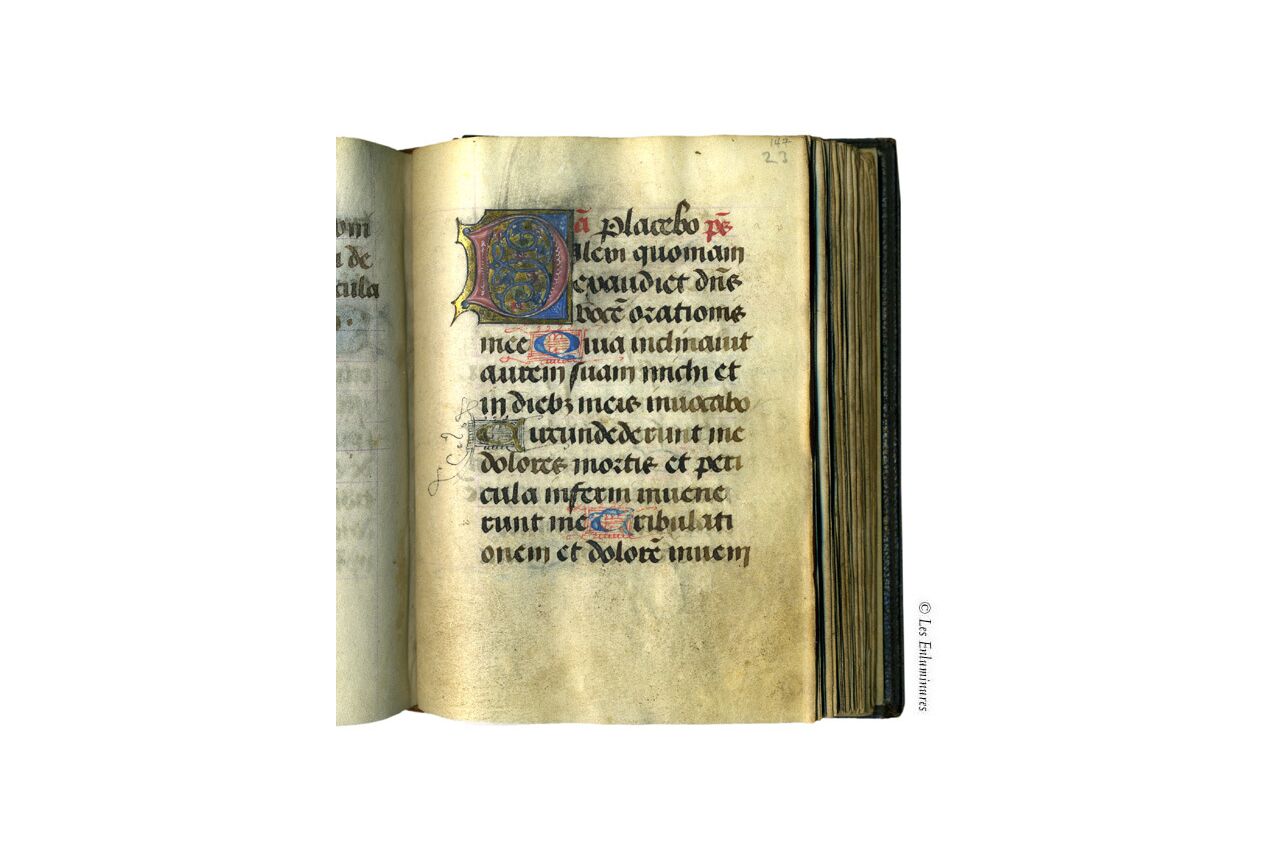 147
23
a de
cula
ā Placebo ps̄
Dilexi quoniam
exaudiet dn̄s
vocē orationis
mee Quia inclinauit
aurem suam michi et
in diebꝫ meis inuocabo
Circundederunt me
dolores mortis et peri
cula inferni inuene
runt me Tribulati
onem et dolorē inueni
© Les Enluminures